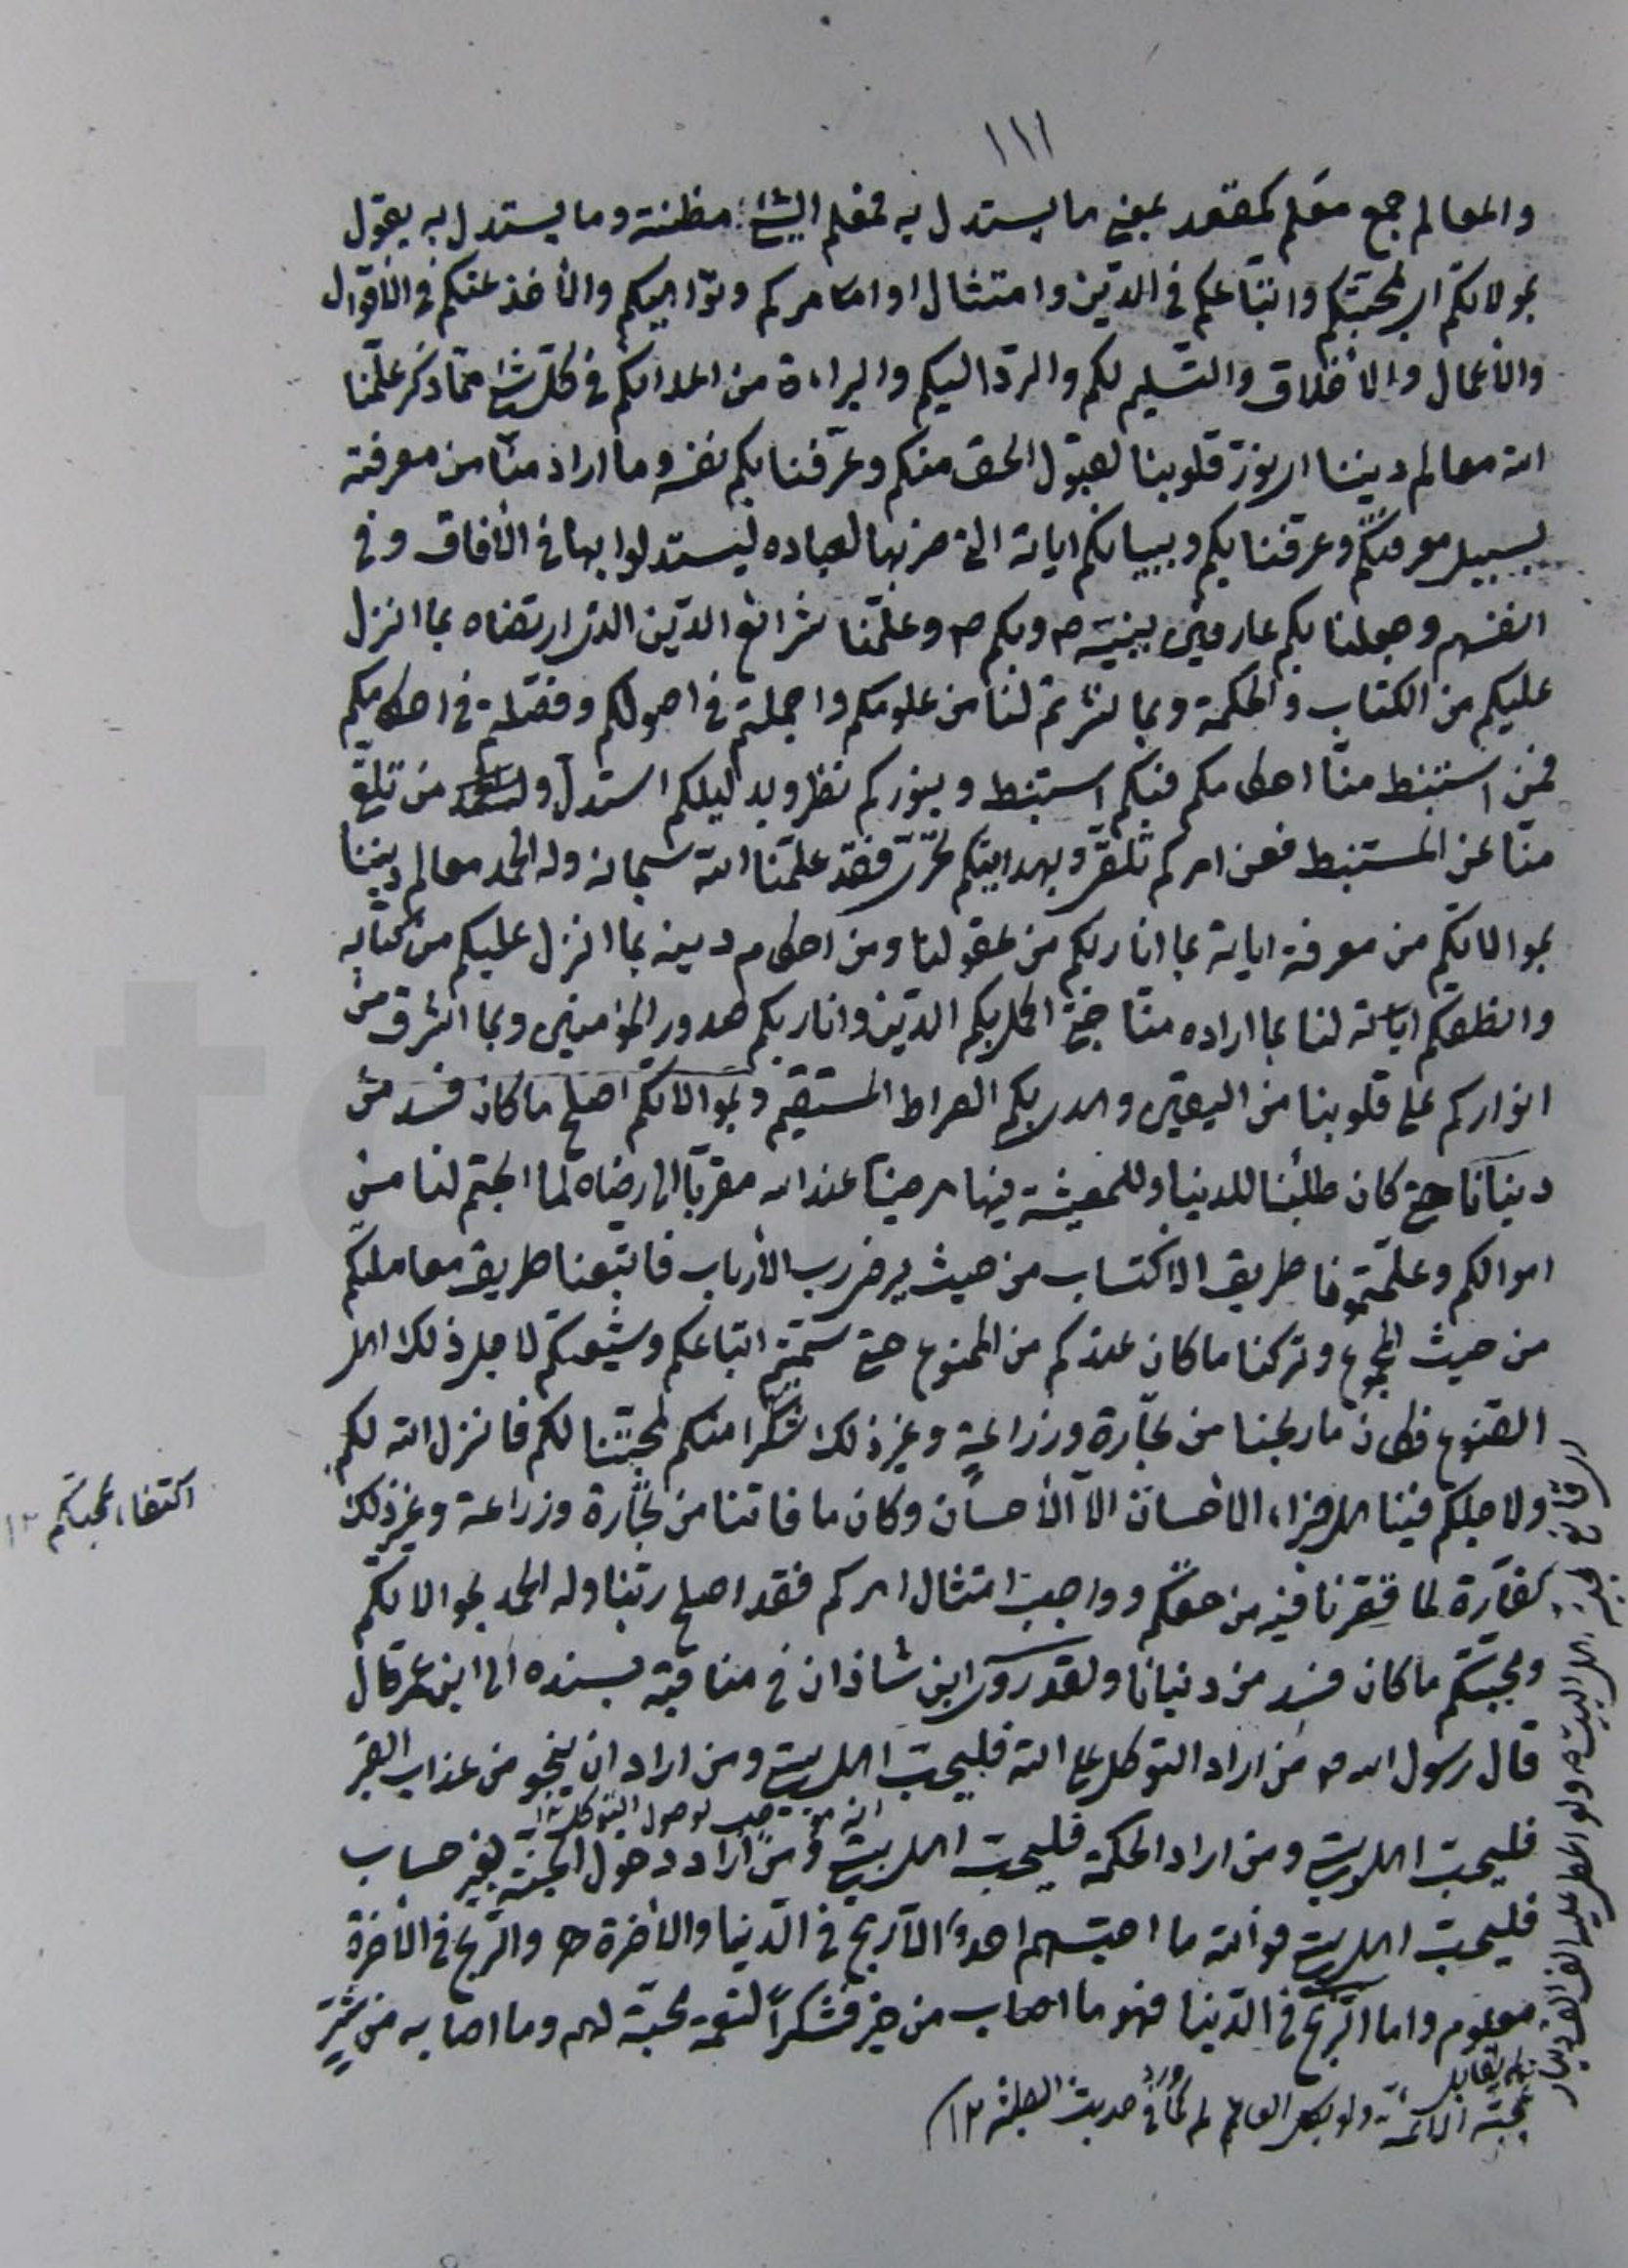 ١١١
والمعالم جمع معلم كمقعد بمعنى ما يستدل به فمعلم الشئ مظنته وما يستدل به يقول
بموالاتكم اى بمحبتكم واتباعكم فى الدين وامتثال اوامركم ونواهيكم والأخذ عنكم فى الأقوال
والأعمال والأخلاق والتسليم لكم والرد اليكم والبراءة من اعدائكم فى كل شئ مما ذكر علمنا
الله معالم ديننا اى نور قلوبنا لقبول الحق منكم وعرفنا بكم نفسه وما اراد منا من معرفته
بسبيل معرفتكم وعرفنا بكم وببيانكم اياته التى ضربها لعباده ليستدلوا بها فى الأفاق وفى
انفسهم وجعلنا بكم عارفين بنبيه ص وبكم ص وعلمنا شرائع الدين الذى ارتضاه بما انزل
عليكم من الكتاب والحكمة وبما نشرتم لنا من علومكم واجملتم فى اصولكم وفصلتم فى احكامكم
فمن استنبط منا احكامكم فبكم استنبط وبنوركم نظر وبدليلكم استدل ومن تلقى
منا عن المستنبط فعن امركم تلقى وبهدايتكم تحرى فقد علمنا الله سبحانه وله الحمد معالم ديننا
بموالاتكم من معرفة اياته بما انار بكم من عقولنا ومن احكام دينه بما انزل عليكم من كتابه
وانطقكم اياته لنا بما اراده منا حتى اكمل بكم الدين وانار بكم صدور المؤمنين وبما اشرق من
انواركم على قلوبنا من اليقين واهدى بكم الصراط المستقيم وبموالاتكم اصلح ما كان فسد من
دنيانا حتى كان طلبنا للدنيا وللمعيشة فيها مرضيا عند الله مقربا الى رضاه لما ابحتم لنا من
اموالكم وعلمتمونا طريق الاكتساب من حيث يرضى رب الأرباب فاتبعنا طريق معاملتكم
من حيث وتركنا ما كان عندكم من الممنوع حتى سميتم اتباعكم وشيعتكم لاجل ذلك اهل
القنوع فكان ما ربحنا من تجارة وزراعة وغير ذلك شكرا منكم لمحبتنا لكم فانزل الله لكم
ولاجلكم فينا هل جزاء الاحسان الا الأحسان وكان ما فاتنا من تجارة وزراعة وغير ذلك
كفارة لما قصرنا فيه من حقكم وواجب امتثال امركم فقد اصلح ربنا وله الحمد بموالاتكم
ومحبتكم ما كان فسد من دنيانا ولقد روى ابن شاذان فى مناقبه بسنده الى ابن عمر قال
قال رسول الله ص من اراد التوكل على الله فليحب اهل بيتى ومن اراد ان ينجو من عذاب القبر
فليحب اهل بيتى ومن اراد الحكمة فليحب اهل بيتى ومن اراد دخول الجنة بغير حساب
فليحب اهل بيتى فوالله ما احبهم احد الا ربح فى الدنيا والأخرة والربح فى الأخرة
معلوم واما الربح فى الدنيا فهو ما اصاب من خير فشكرا لنعمة محبته لهم وما اصابه من شر
اكتفاء بمحبتكم ١٢
محبة الائمة ولو العالم لم كما ورد فى حديث ١٢